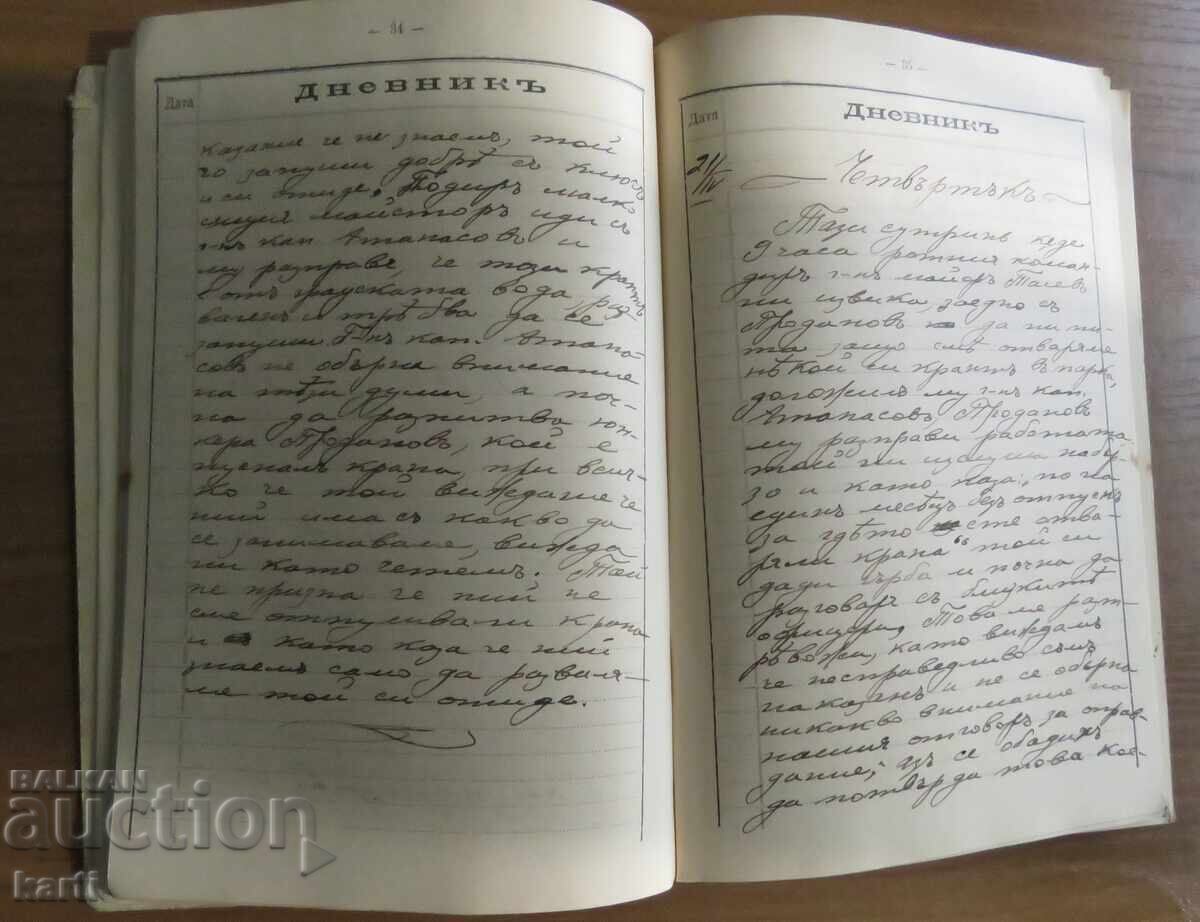 — 94 —
Дневникъ
Дата
казахме че не знаемъ, той
го запуши добрѣ съ ключъ
и си отиде. Подиръ малко
същия майсторъ иди съ
г-нъ кап. Атанасовъ и
му разправе, че този кранъ
е отъ градската вода, раз-
валенъ и трѣбва да се
запуши. Г-нъ кап. Атана-
совъ не обърна внимание
на тѣзи думи, а поч-
на да разпитва юн-
кара Продановъ, кой е
пусналъ крана, при всич-
ко че той виждаше че
ний има съ какво да
се занимаваме, вижда
ни като четемъ. Той
не призна че ний не
сме отпушвали крана
и като каза че ний
знаемъ само да разваля-
ме той си отиде.
— 95 —
Дневникъ
Дата
21/IV
Четвъртъкъ
Тази сутринь къде
9 часа ротния коман-
диръ г-нъ майоръ Талев
ни извика, заедно съ
Продановъ да ни пи-
та защо сме отваряле
нѣкой си кранъ въ парка,
доложилъ му г-нъ кап.
Атанасовъ, Продановъ
му разправи работата
той ни изслуша набър-
зо и като каза: „по на
единъ месѣцъ безъ отпускъ
за гдѣто сте отва-
ряли крана“ той си
дади гърба и почна да
разговаря съ близкитѣ
офицери, Това ме раз-
трѣвожи, като виждамъ
че несправедливо съмъ
наказанъ и не се обърна
никакво внимание на
нашия отговоръ за оправ-
дание; азъ се обадихъ
да потвърда това кое-
BALKAN
auction
karti